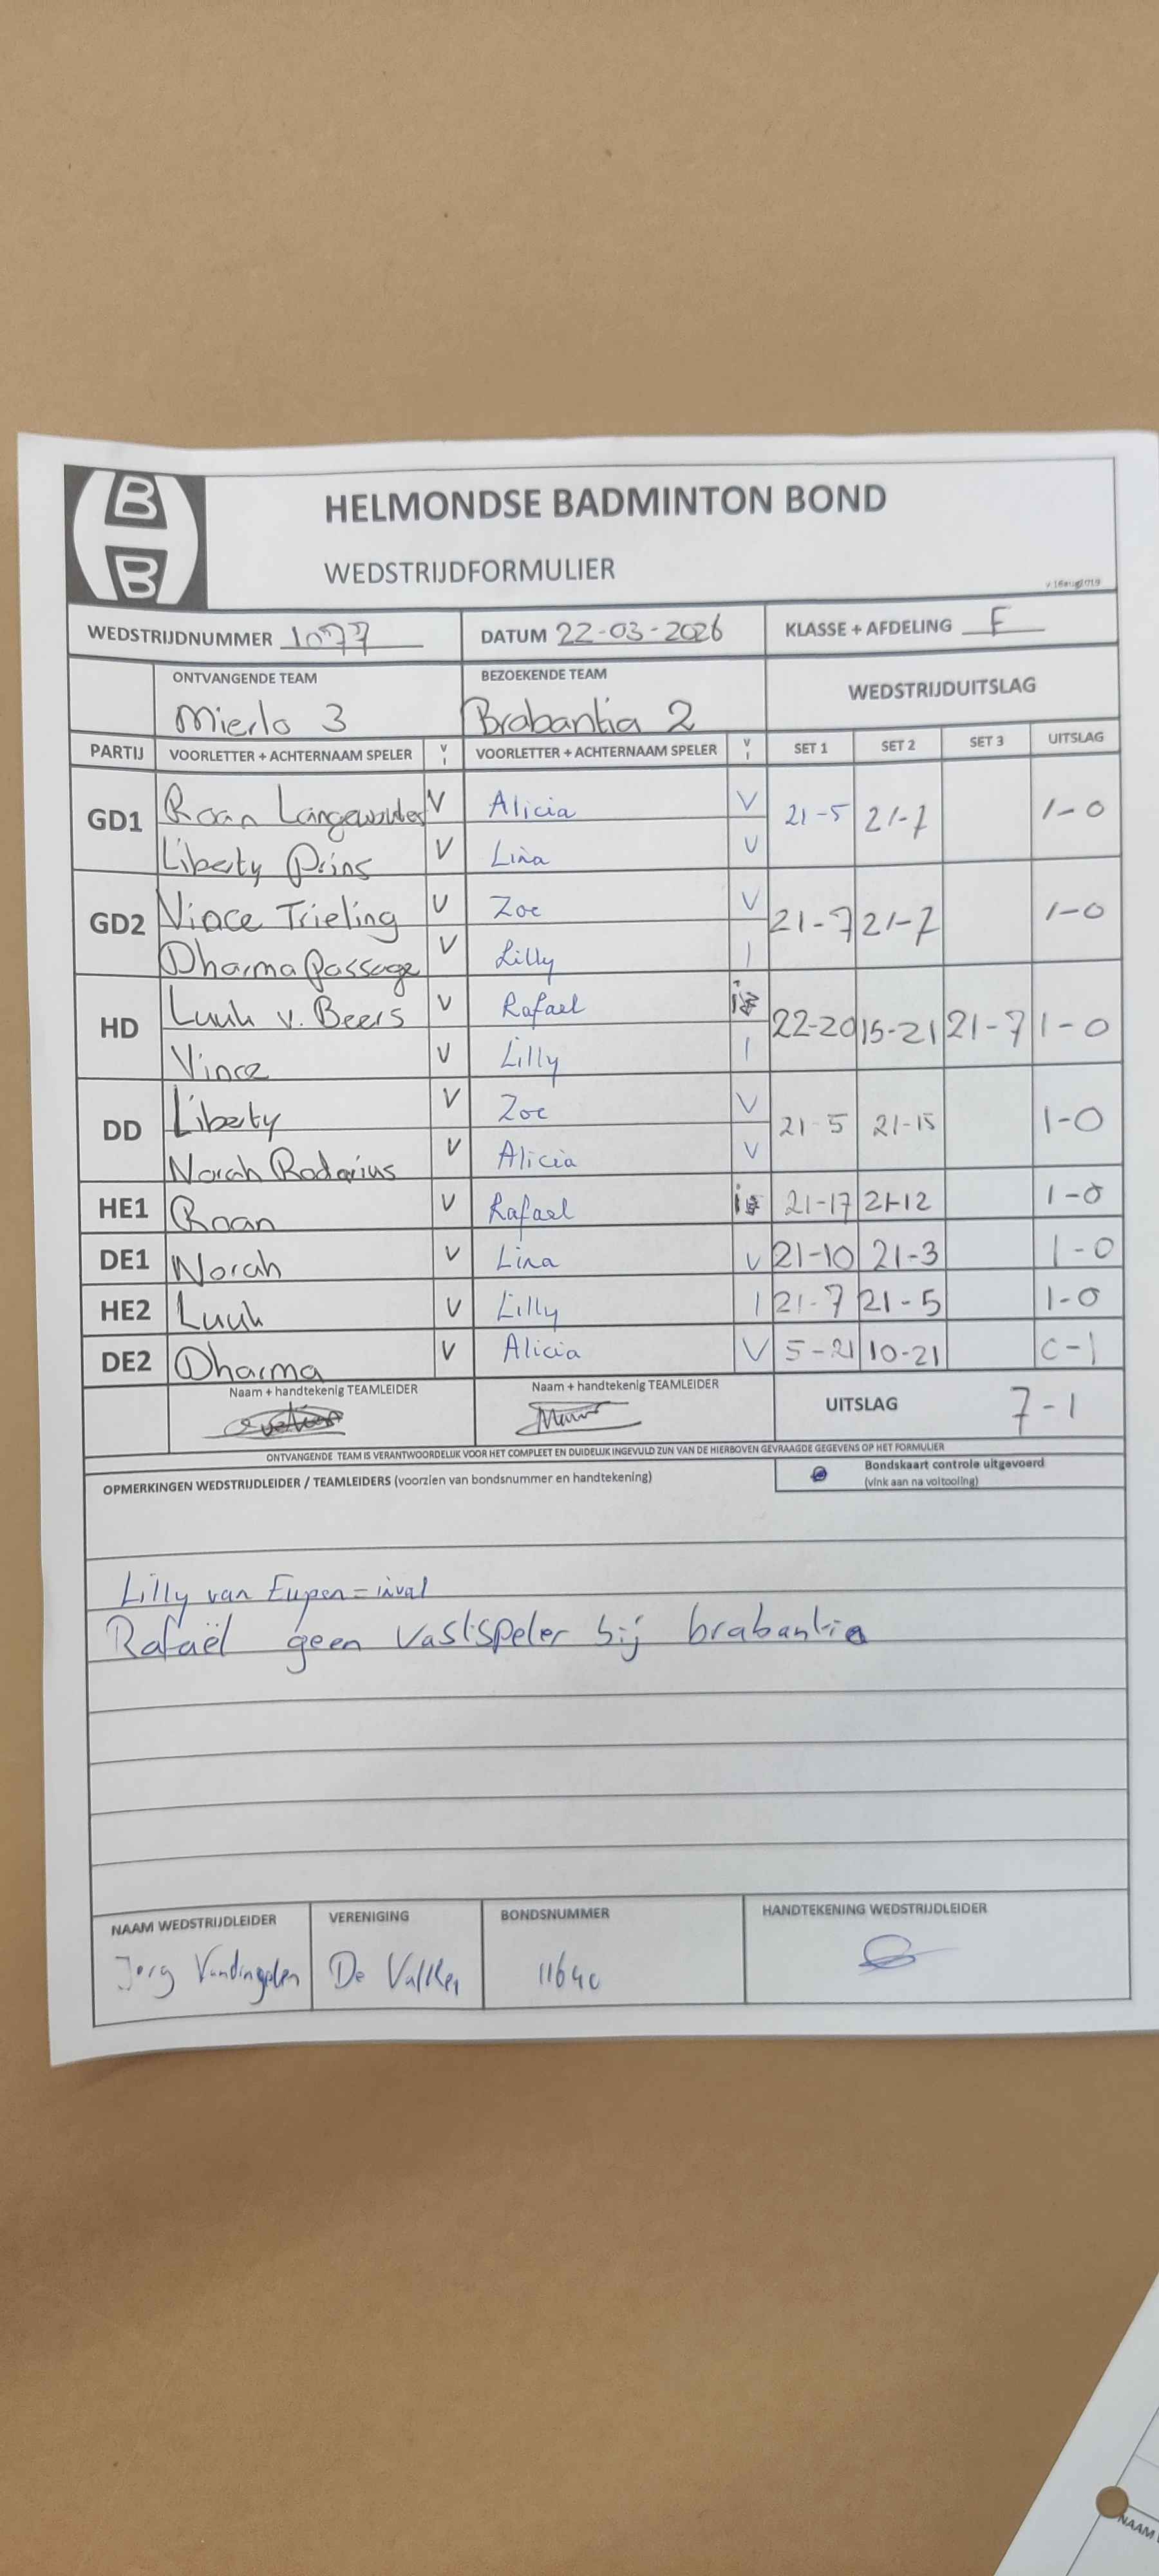 B
B
HELMONDSE BADMINTON BOND
WEDSTRIJDFORMULIER
v.16aug2019
WEDSTRIJDNUMMER 1077 DATUM 22-03-2026 KLASSE + AFDELING F
ONTVANGENDE TEAM BEZOEKENDE TEAM WEDSTRIJDUITSLAG
Mierlo 3 Brabantia 2
PARTIJ VOORLETTER + ACHTERNAAM SPELER V I VOORLETTER + ACHTERNAAM SPELER V I SET 1 SET 2 SET 3 UITSLAG
GD1 Roan V Alicia V 21-5 21-7 1-0
Liberty Prins V Lina V
GD2 Vince Trieling V Zoe V 21-7 21-7 1-0
Dharma Passage V Lilly I
HD Luuk v. Beers V Rafael i 22-20 15-21 21-7 1-0
Vince V Lilly I
DD Liberty V Zoe V 21-5 21-15 1-0
Norah V Alicia V
HE1 Roan V Rafael i 21-17 21-12 1-0
DE1 Norah V Lina V 21-10 21-3 1-0
HE2 Luuk V Lilly I 21-7 21-5 1-0
DE2 Dharma V Alicia V 5-21 10-21 0-1
Naam + handtekenig TEAMLEIDER Naam + handtekenig TEAMLEIDER UITSLAG 7-1
ONTVANGENDE TEAM IS VERANTWOORDELIJK VOOR HET COMPLEET EN DUIDELIJK INGEVULD ZIJN VAN DE HIERBOVEN GEVRAAGDE GEGEVENS OP HET FORMULIER
OPMERKINGEN WEDSTRIJDLEIDER / TEAMLEIDERS (voorzien van bondsnummer en handtekening) Bondskaart controle uitgevoerd
(vink aan na voltooiing)
Lilly van Eupen = inval
Rafaël geen vastspeler bij brabantia
NAAM WEDSTRIJDLEIDER VERENIGING BONDSNUMMER HANDTEKENING WEDSTRIJDLEIDER
Jorg De 11640
NAAM